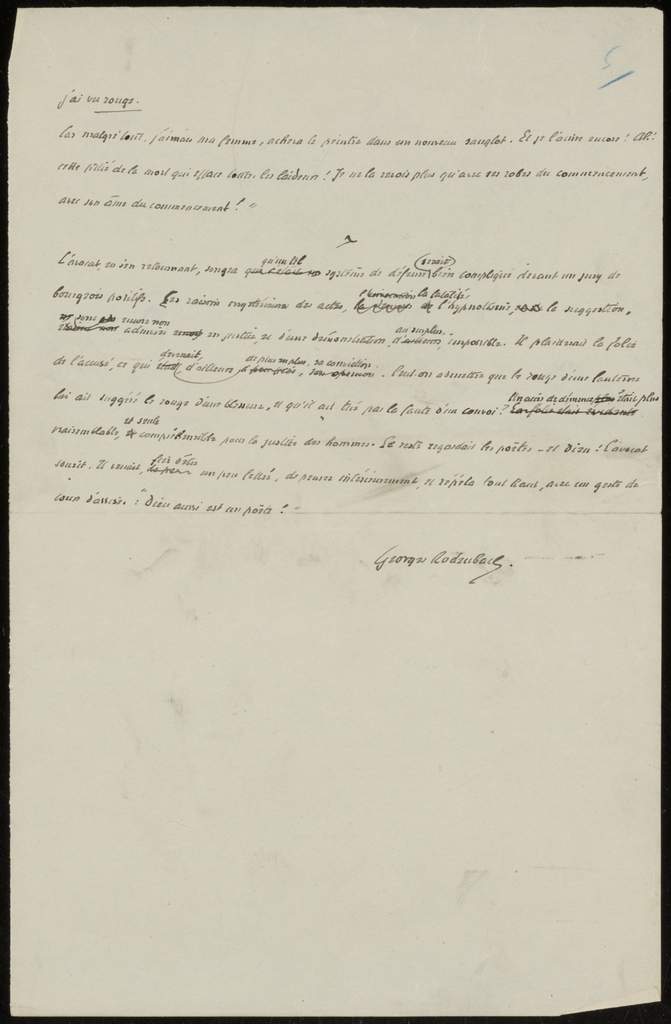 5
j'ai vu rouge.
Car malgré tout, j'aimais ma femme, acheva le peintre dans un nouveau sanglot. Et je l'aime encore ! Ah !
cette pitié de la mort qui efface toutes les laideurs ! Je ne la revois plus qu'avec ses robes du commencement,
avec son âme du commencement ! "
L'avocat, en s'en retournant, songea qu'un tel système de défense serait bien compliqué devant un jury de
bourgeois positifs. Les raisons mystérieuses des actes, la fatalité, l'hypnotisme, la suggestion,
sont encore non admises en justice, et d'une démonstration, au surplus, impossible. Il plaiderait la folie
de l'accusé, ce qui devenait, d'ailleurs, de plus en plus, sa conviction. Peut-on admettre que le rouge d'une lanterne
lui ait suggéré le rouge d'une blessure, et qu'il ait tué par la faute d'un convoi ? Un accès de démence était plus
vraisemblable, et seule compréhensible pour la justice des hommes. Le reste regardait les poètes – et Dieu ! L'avocat
sourit. Il venait, fier d'être un peu lettré, de penser intérieurement, et répéta tout haut, avec un geste de
cour d'assises : " Dieu aussi est un poète ! "
Georges Rodenbach.